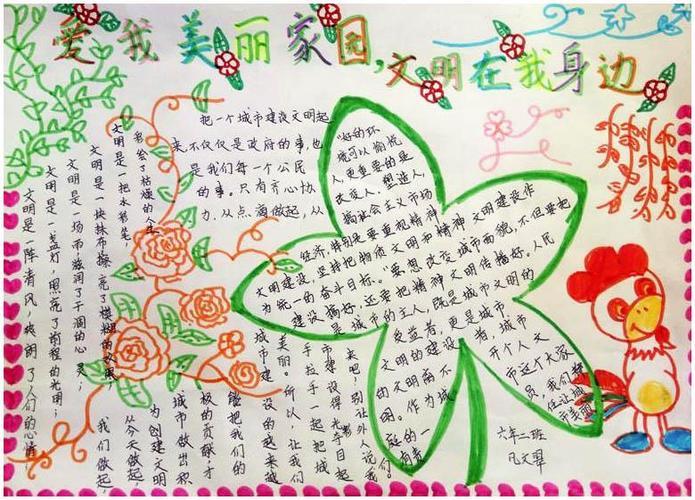 爱我美丽家园,文明在我身边
文明是一阵清风,爽朗了人们的心情
文明是一盏灯,照亮了前程的光明;
文明是一场雨,滋润了干涸的心灵;
文明是一块抹布,擦亮了模糊的双眼
文明是一把水彩笔,
彩绘了枯燥的人生
把一个城市建设文明起
来不仅仅是政府的事也
是我们每一个公民
的事。只有齐心协
力,从点滴做起,从
"好的环
境可以愉悦
人,更重要的是
改变人,塑造人,
搞社会主义市场
经济,特别是要重视精神
文明建设,坚持把物质文明和精神文明建设作
为统一的奋斗目标。"要想改变城市面貌,不但要把
建设搞好,还要把精神文明传播好。人民
是城市的主人,既是城市文明的
受益者,更是城市
文明的建设者,城市
的文明离不开个人
困。作为城市这个大家
庭的一员,我们有责
任让城市美丽
来吧!别让外人说我们
市建设得不文明
手拉手一起把城
美丽。所以,让我们
城市建设的越来越
能把我们的
极的贡献,才
城市做出积
为创建文明
从今天做起
我们做起,
六年二班
凡文翠